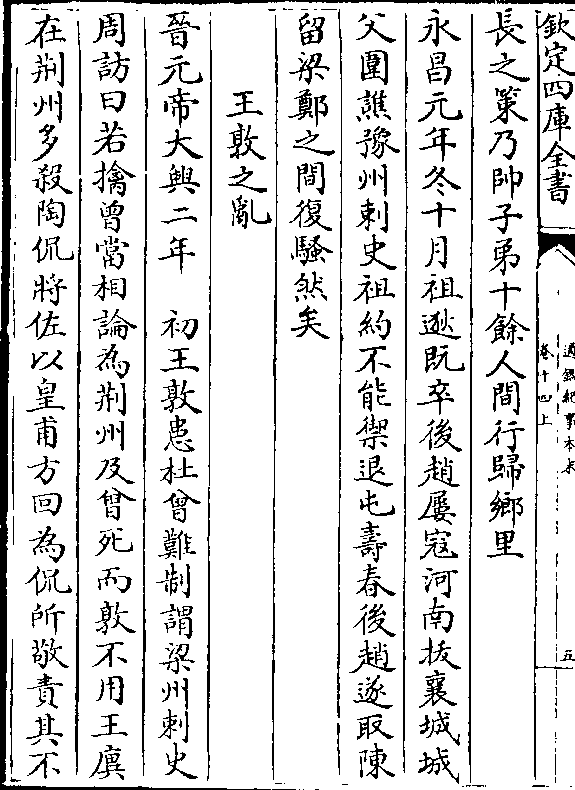 欽定四庫全書
通鑑紀事本末
卷十四上
五
長之策乃帥子弟十餘人間行歸鄉里
永昌元年冬十月祖逖既卒後趙屢寇河南拔襄城城
父圍譙豫州刺史祖約不能禦退屯壽春後趙遂取陳
留梁鄭之間復騷然矣
王敦之亂
晉元帝大興二年　初王敦患杜曾難制謂梁州刺史
周訪曰若擒曾當相論為荆州及曾死而敦不用王廙
在荆州多殺陶侃將佐以皇甫方回為侃所敬責其不